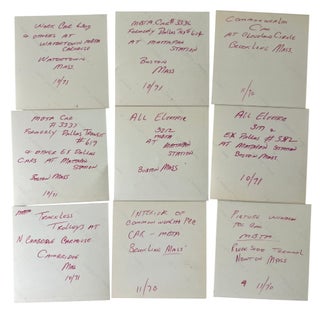 WORK CAR 6309
& OTHERS AT
WATERTOWN MBTA
CARHOUSE
WATERTOWN
MASS
10/71
MBTA CAR # 3336
FORMERLY DALLAS
AT MATTAPAN
STATION
BOSTON
MASS
10/71
COMMONWEALTH
CAR
AT CLEVELAND CIRCLE
BROOKLINE
MASS.
11/70
MBTA CAR
# 3333
FORMERLY DALLAS TEXAS
# 619
& OTHER EX DALLAS
CARS AT MATTAPAN
STATION
BOSTON MASS
10/71
ALL ELECTRIC
3212
MBTA
AT MATTAPAN
STATION
BOSTON MASS
ALL ELECTRIC
&
EX DALLAS #
AT MATTAPAN STATION
BOSTON MASS
10/71
MBTA
TRACKLESS
TROLLEYS AT
N. CAMBRIDGE CARHOUSE
CAMBRIDGE
MASS
10/71
INTERIOR OF
COMMONWEALTH PCC
CAR - MBTA
BROOKLINE MASS
11/70
PICTURE WINDOW
PCC CAR
MBTA
RIVERSIDE TERMINAL
NEWTON MASS
11/70